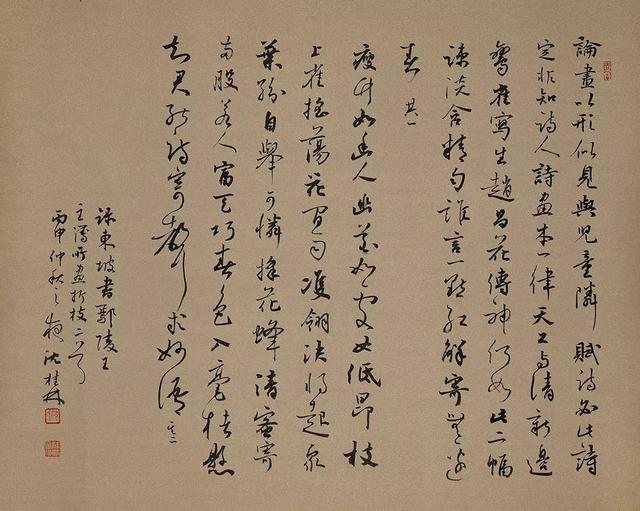 論畫以形似見與兒童隣賦詩必此詩
定非知詩人詩畫本一律天工与清新邊
鸞雀寫生趙昌花傳神何如此二幅
疎淡含精勻誰言一點紅解寄無邊
春 其一
瘦竹如幽人幽花如處女低昂枝
上雀搖蕩花間雨雙翎決將起眾
葉紛自舉可憐採花蜂清蜜寄
兩股若人富天巧春色入毫楮懸
知君能詩寄聲求妙語 其二
錄東坡書鄢陵王
主簿所畫折枝二首
丙申仲秋之夜沈桂林